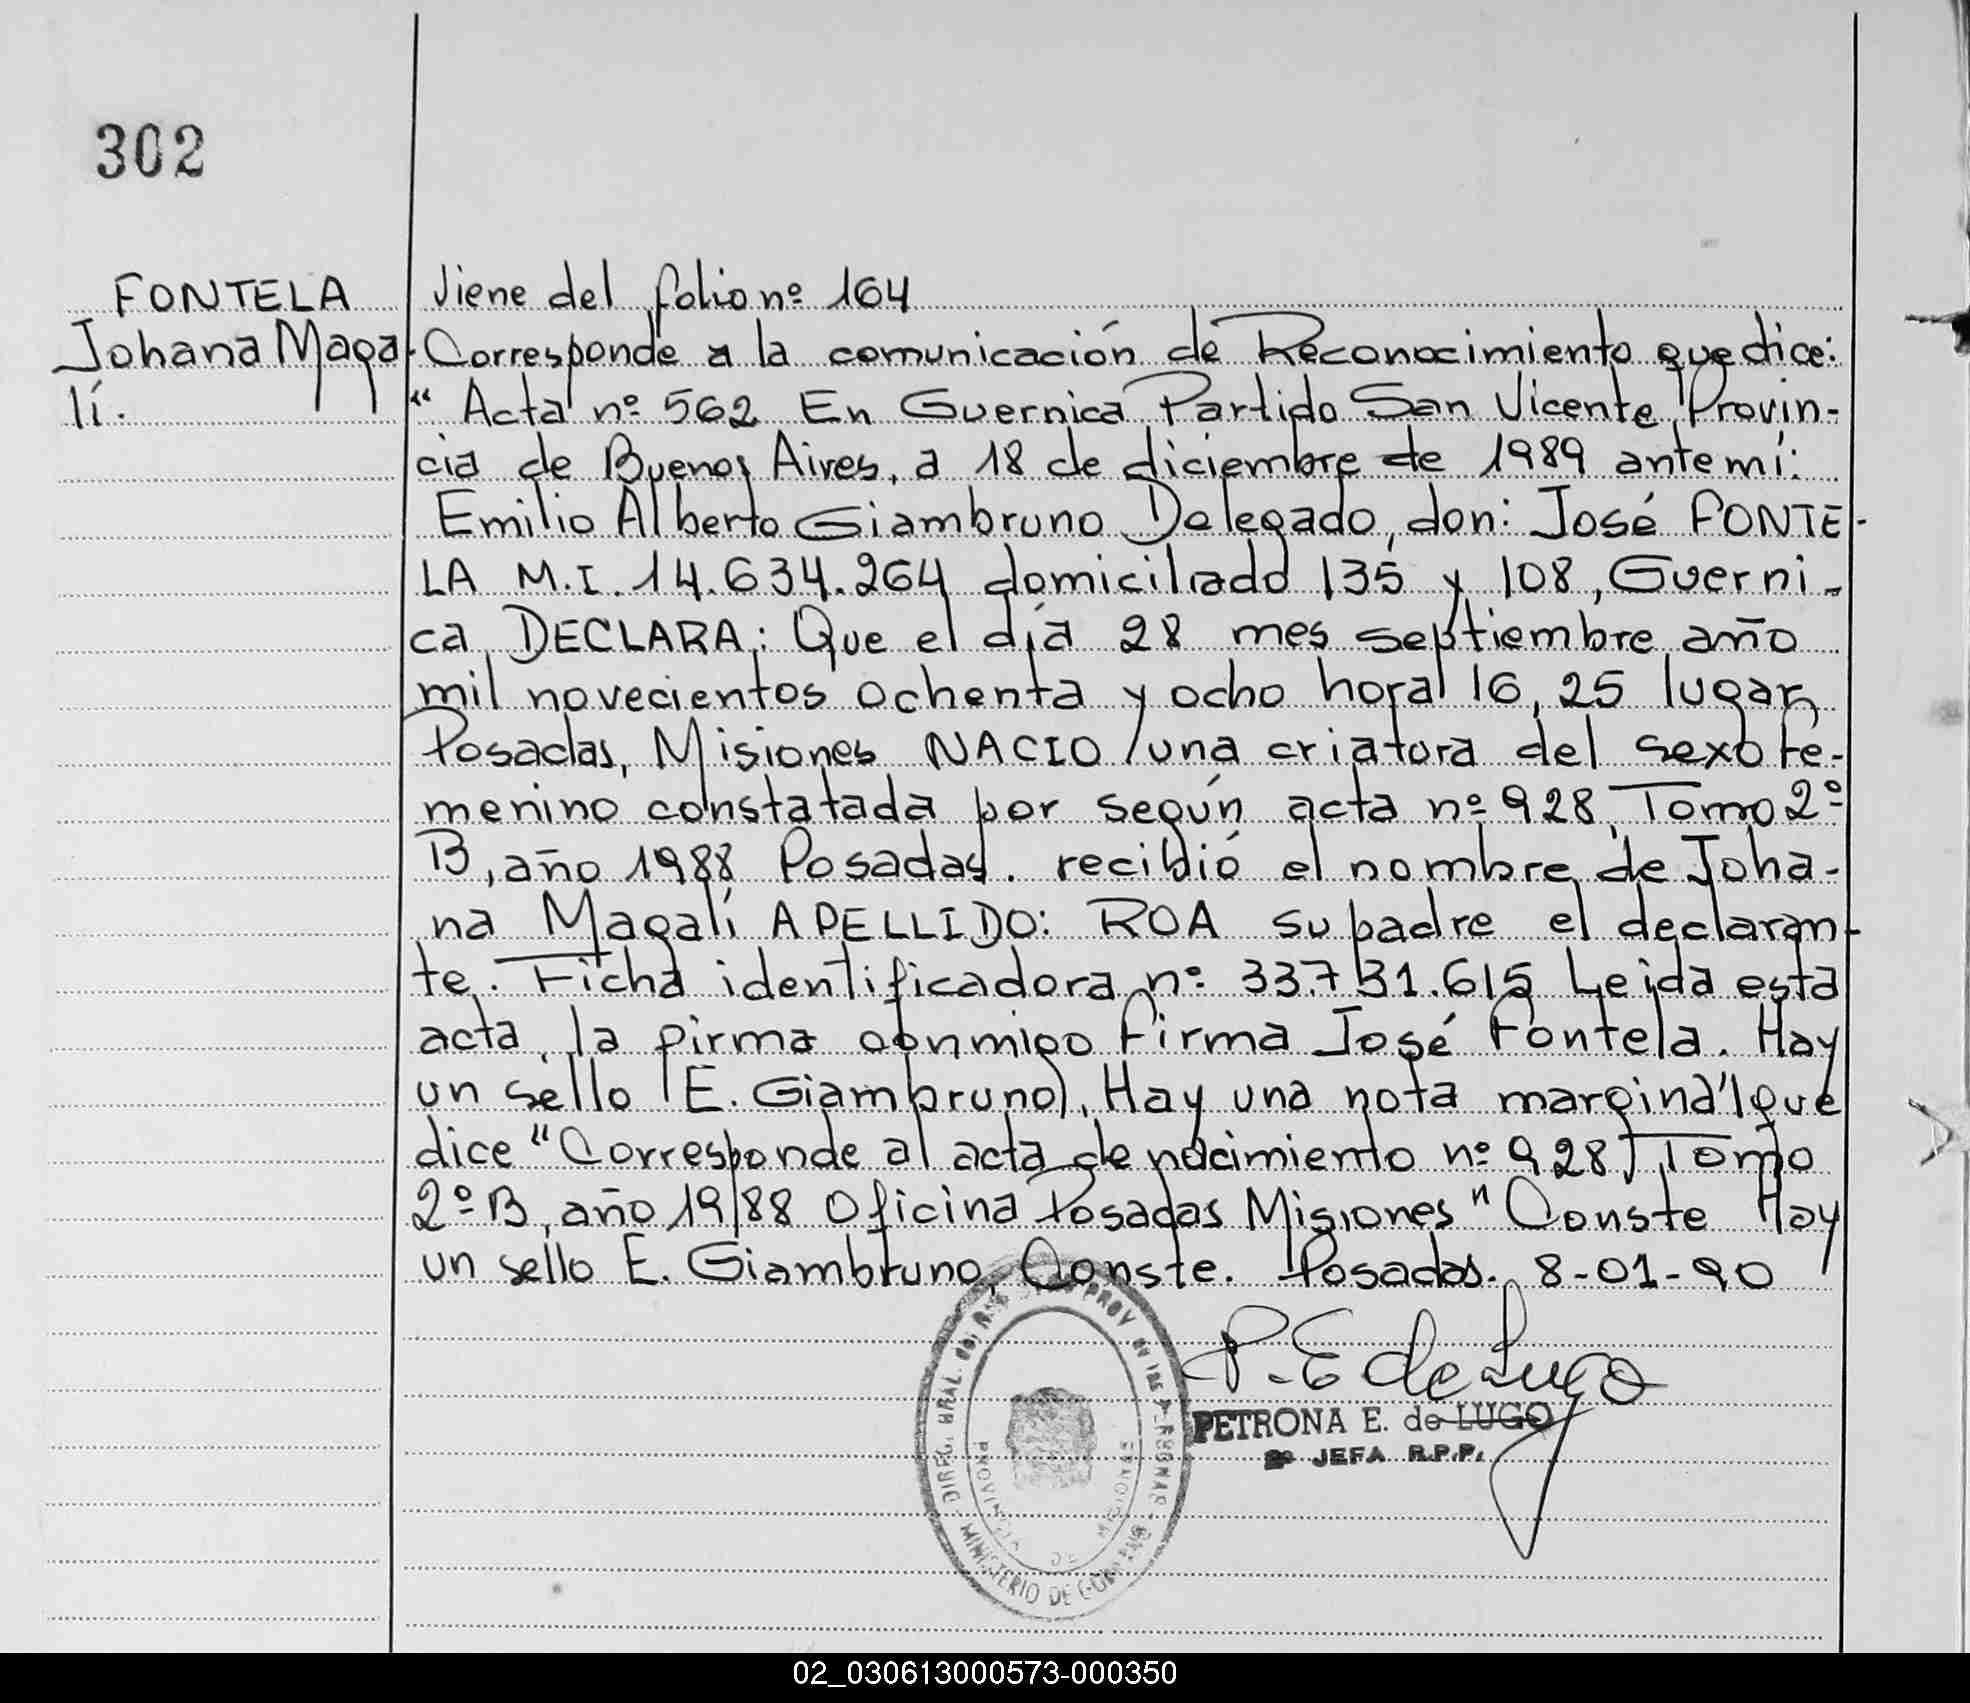 302
FONTELA
Johana Maga-
lí.
Viene del folio nº 164
Corresponde a la comunicación de Reconocimiento que dice:
“ Acta nº 562 En Guernica Partido San Vicente Provin-
cia de Buenos Aires, a 18 de diciembre de 1989 ante mí:
Emilio Alberto Giambruno Delegado, don: José FONTE-
LA M.I. 14.634.264 domiciliado 135 y 108, Guerni-
ca, DECLARA: Que el día 28 mes septiembre año
mil novecientos ochenta y ocho hora 16,25 lugar
Posadas, Misiones NACIO una criatura del sexo fe-
menino constatada por según acta nº 928, Tomo 2º
B, año 1988 Posadas. recibió el nombre de Joha-
na Magalí APELLIDO: ROA su padre el declaran-
te. Ficha identificadora nº 33.731.615 Leida esta
acta, la firma conmigo Firma José Fontela. Hay
un sello (E. Giambruno). Hay una nota marginal que
dice “Corresponde al acta de nacimiento nº 928 Tomo
2º B, año 1988 Oficina Posadas Misiones" Conste Hay
un sello E. Giambruno, Conste. Posadas. 8-01-90
P. E de Lugo
PETRONA E. de LUGO
2º JEFA R.P.P.
PROVINCIA DE MISIONES
MINISTERIO DE GOBIERNO
02_030613000573-000350